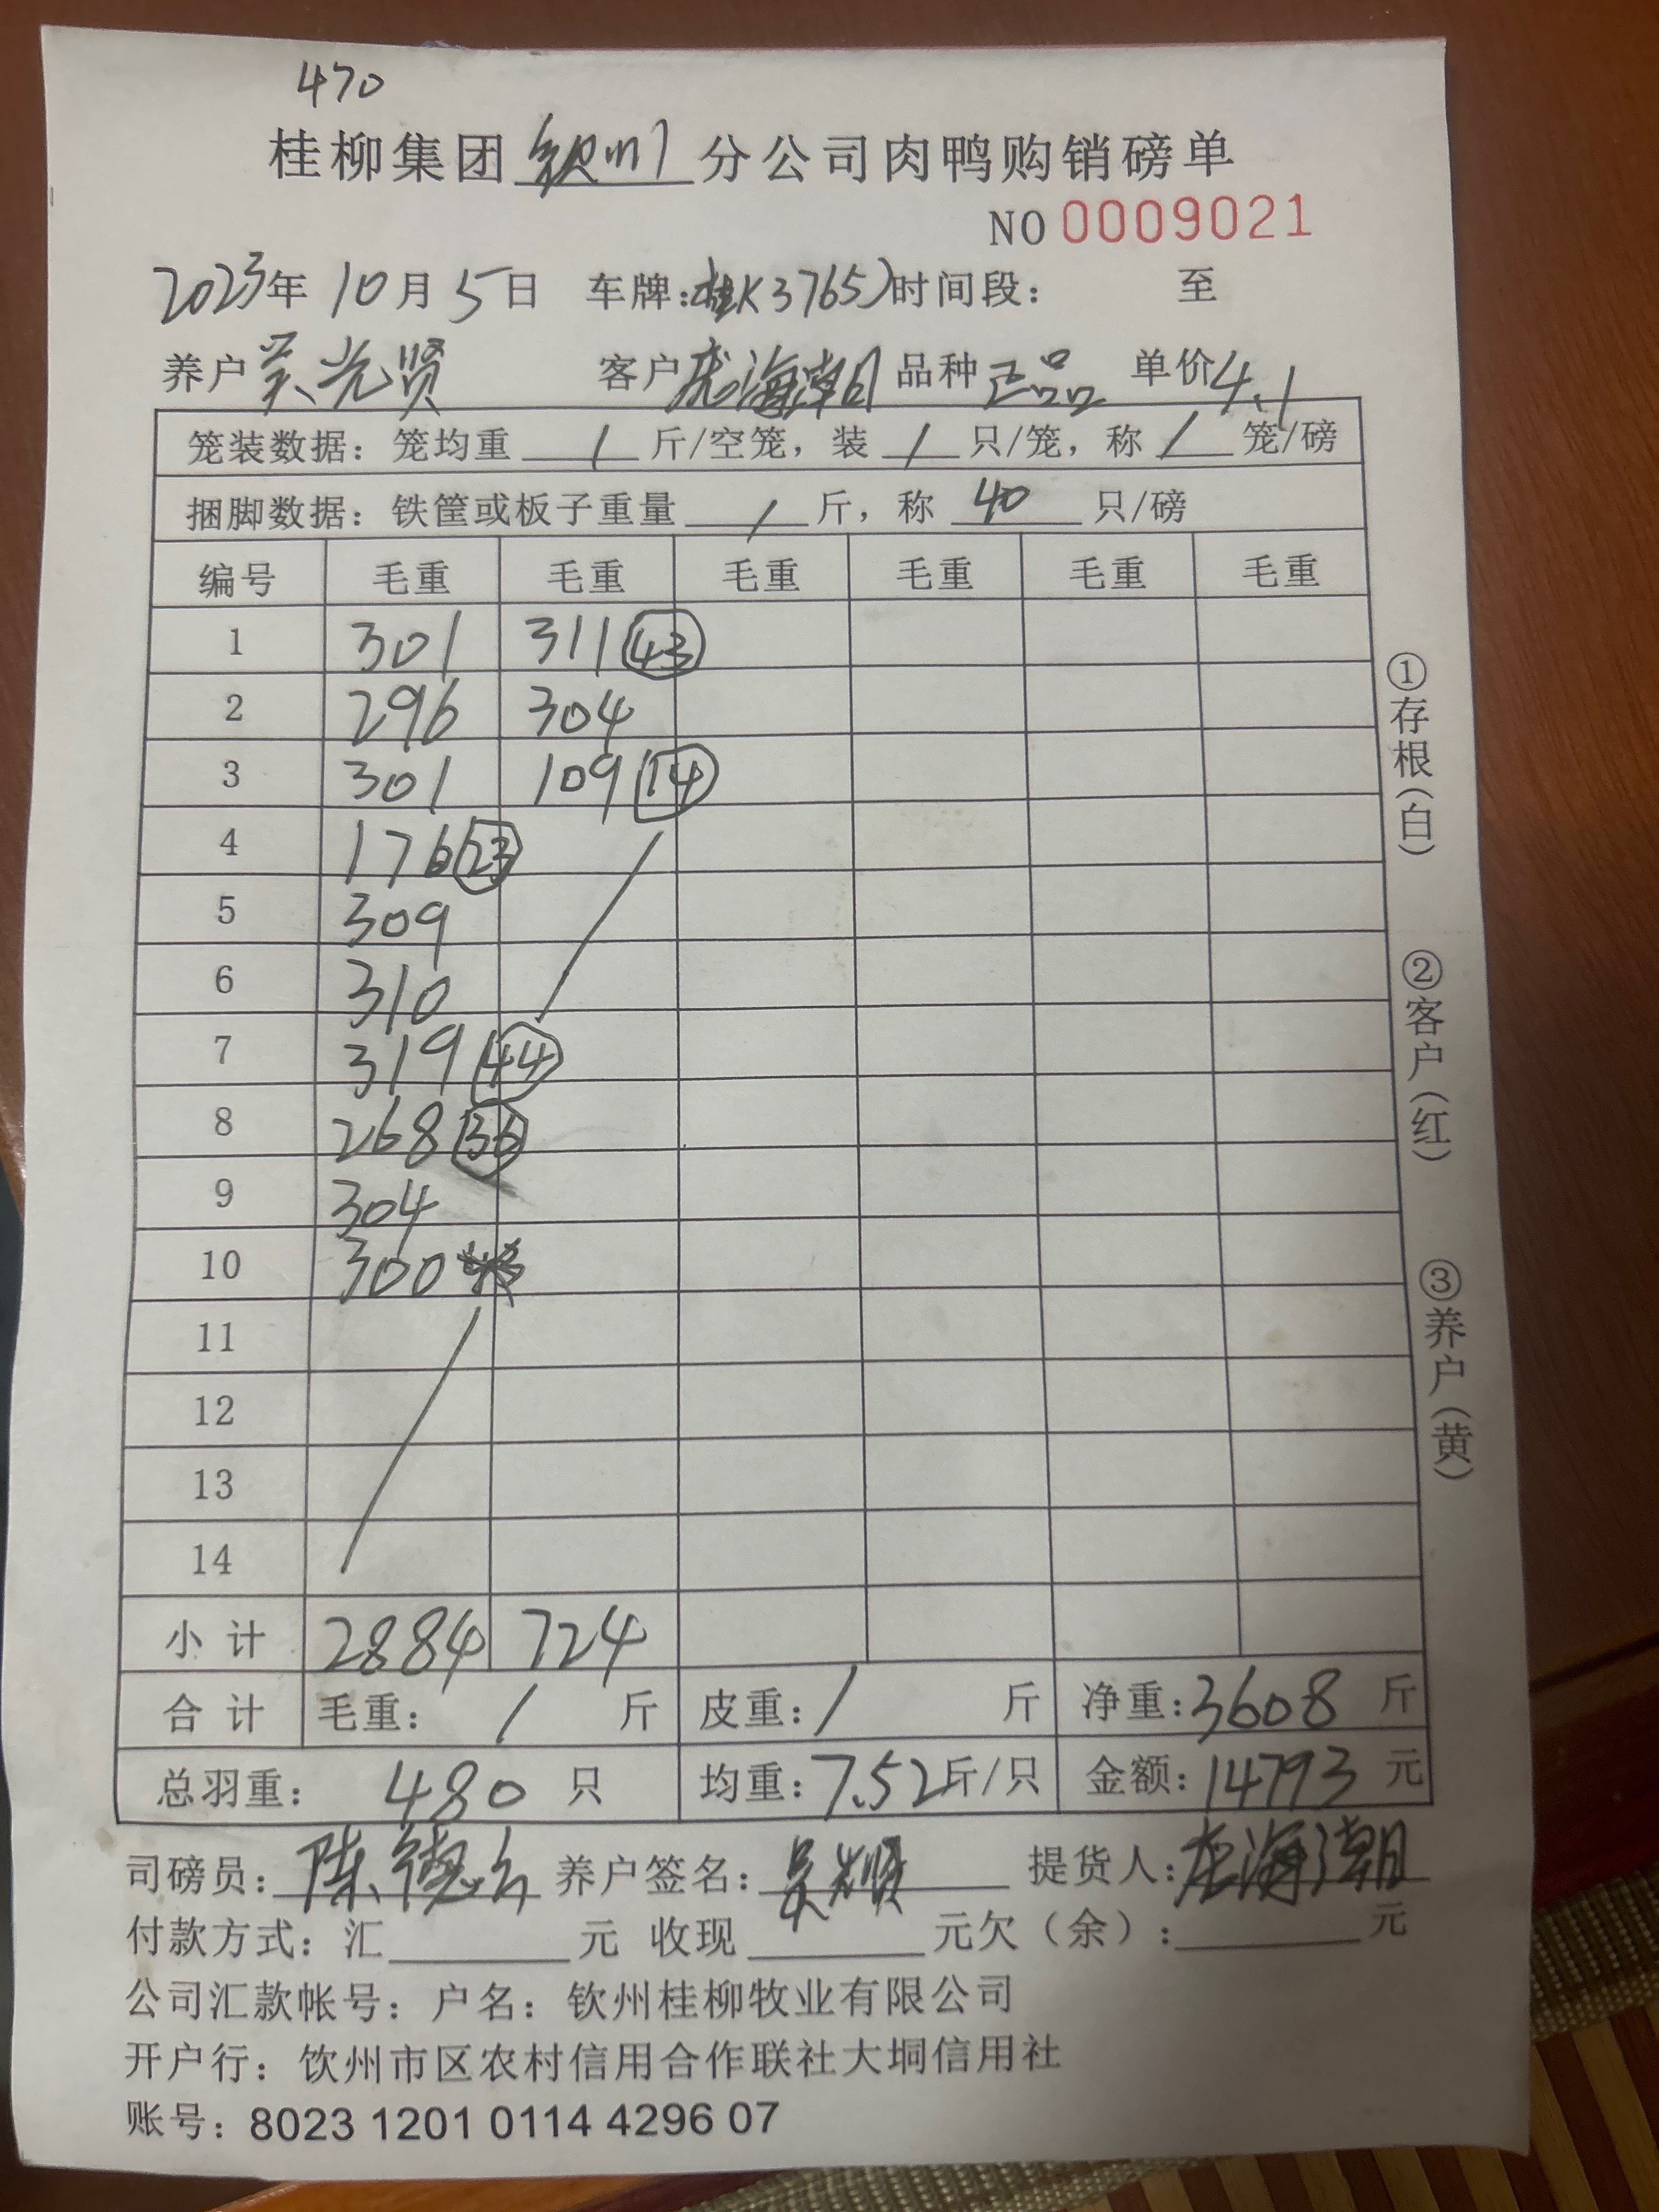 470
桂柳集团钦州分公司肉鸭购销磅单
NO 0009021
2023年 10月 5日 车牌:桂K3765 时间段: 至
养户 吴光贤 客户 庞海潮 品种 正品 单价 4.1
笼装数据: 笼均重 / 斤/空笼, 装 / 只/笼, 称 / 笼/磅
捆脚数据: 铁筐或板子重量 / 斤, 称 40 只/磅
编号 毛重 毛重 毛重 毛重 毛重 毛重
1 301 311 43
2 296 304
3 301 109 14
4 176 23
5 309
6 310
7 319 44
8 268 36
9 304
10 300
11
12
13
14
小计 2884 724
合计 毛重: / 斤 皮重: / 斤 净重: 3608 斤
总羽重: 480 只 均重: 7.52 斤/只 金额: 14793 元
司磅员: 陈德 养户签名: 吴 提货人: 庞海潮
付款方式: 汇 元 收现 元欠(余): 元
公司汇款帐号: 户名: 钦州桂柳牧业有限公司
开户行: 饮州市区农村信用合作联社大垌信用社
账号: 8023 1201 0114 4296 07
①存根(白)
②客户(红)
③养户(黄)